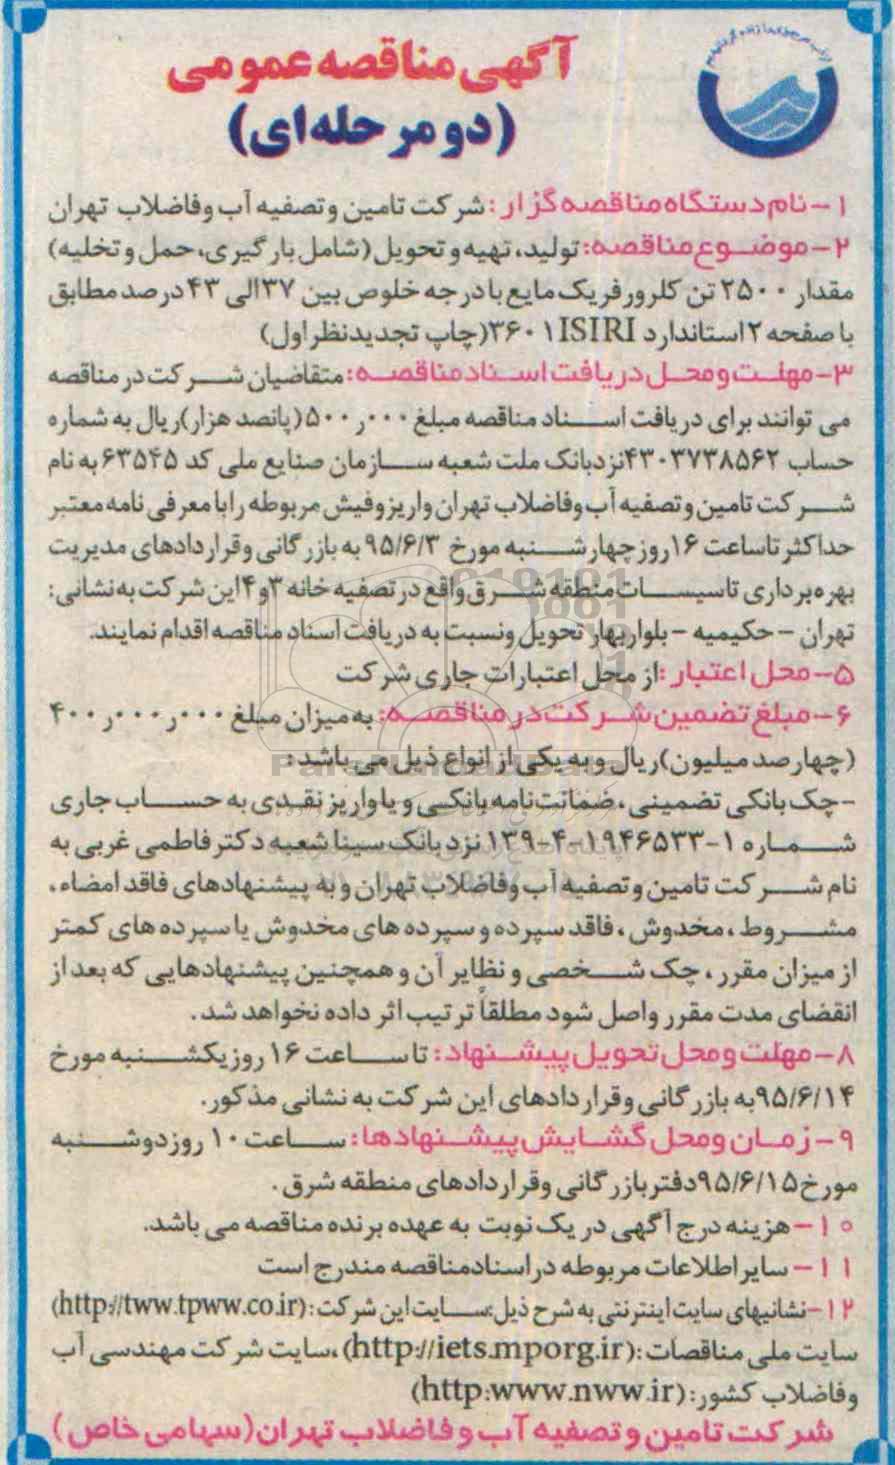 آگهی مناقصه عمومی
(دو مرحله‌ای)
۱- نام دستگاه مناقصه گزار: شرکت تامین و تصفیه آب وفاضلاب تهران
۲- موضوع مناقصه: تولید، تهیه و تحویل (شامل بارگیری، حمل و تخلیه)
مقدار ۲۵۰۰ تن کلرورفریک مایع با درجه خلوص بین ۳۷الی ۴۳ درصد مطابق
با صفحه ۲ استاندارد ISIRI ۳۶۰۱(چاپ تجدیدنظر اول)
۳- مهلت ومحل دریافت اسناد مناقصه: متقاضیان شرکت در مناقصه
می توانند برای دریافت اسناد مناقصه مبلغ ۵۰۰ر۰۰۰(پانصد هزار)ریال به شماره
حساب ۴۳۰۳۷۳۸۵۶۲نزدبانک ملت شعبه سازمان صنایع ملی کد ۶۳۵۴۵ به نام
شرکت تامین و تصفیه آب وفاضلاب تهران واریزوفیش مربوطه رابا معرفی نامه معتبر
حداکثر تاساعت ۱۶ روز چهارشنبه مورخ ۹۵/۶/۳ به بازرگانی وقراردادهای مدیریت
بهره‌برداری تاسیسات منطقه شرق واقع در تصفیه خانه ۳و۴ این شرکت به نشانی:
تهران - حکیمیه - بلواربهار تحویل ونسبت به دریافت اسناد مناقصه اقدام نمایند.
۵- محل اعتبار: از محل اعتبارات جاری شرکت
۶- مبلغ تضمین شرکت در مناقصه: به میزان مبلغ ۴۰۰ر۰۰۰ر۰۰۰
(چهارصد میلیون)ریال و به یکی از انواع ذیل می باشد:
-چک بانکی تضمینی، ضمانت‌نامه بانکی و یا واریز نقدی به حساب جاری
شماره ۱-۱۹۴۶۵۳۳-۴-۱۳۹ نزد بانک سینا شعبه دکتر فاطمی غربی به
نام شرکت تامین و تصفیه آب وفاضلاب تهران و به پیشنهادهای فاقد امضاء،
مشروط، مخدوش، فاقد سپرده و سپرده های مخدوش یا سپرده های کمتر
از میزان مقرر، چک شخصی و نظایر آن و همچنین پیشنهادهایی که بعد از
انقضای مدت مقرر واصل شود مطلقاً ترتیب اثر داده نخواهد شد.
۸- مهلت و محل تحویل پیشنهاد: تا ساعت ۱۶ روز یکشنبه مورخ
۹۵/۶/۱۴به بازرگانی وقراردادهای این شرکت به نشانی مذکور.
۹- زمان ومحل گشایش پیشنهادها: ساعت ۱۰ روزدوشنبه
مورخ۹۵/۶/۱۵دفتربازرگانی وقراردادهای منطقه شرق.
۱۰- هزینه درج آگهی در یک نوبت به عهده برنده مناقصه می باشد.
۱۱- سایر اطلاعات مربوطه دراسنادمناقصه مندرج است
۱۲-نشانیهای سایت اینترنتی به شرح ذیل: سایت این شرکت: (http://tww.tpww.co.ir)
سایت ملی مناقصات: (http://iets.mporg.ir)، سایت شرکت مهندسی آب
وفاضلاب کشور: (http:www.nww.ir)
شرکت تامین و تصفیه آب و فاضلاب تهران (سهامی خاص)